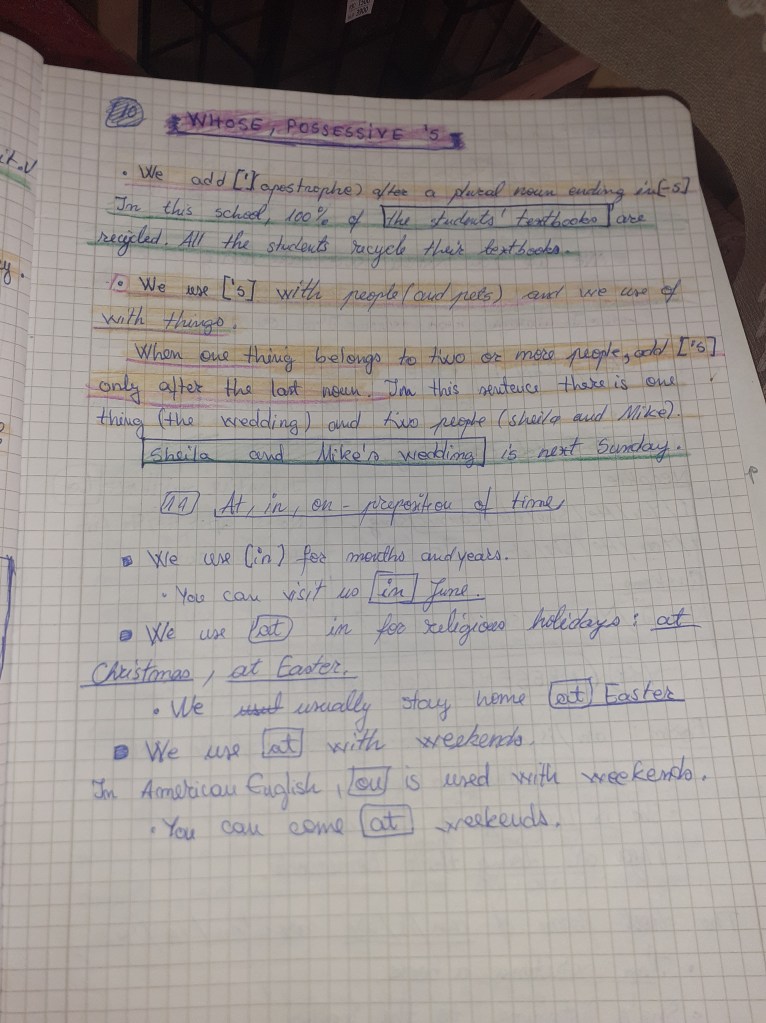 10 WHOSE, POSSESSIVE 's
• We add ['] apostrophe) after a plural noun ending in [-s]
In this school, 100% of the students' textbooks are
recycled. All the students recycle their textbooks.
• We use ['s] with people (and pets) and we use of
with things.
When one thing belongs to two or more people, add ['s]
only after the last noun. In this sentence there is one
thing (the wedding) and two people (sheila and Mike).
Sheila and Mike's wedding is next Sunday.
11 At, in, on - preposition of time
We use (in) for months and years.
• You can visit us in June.
We use (at) in for religious holidays: at
Christmas, at Easter.
• We usually stay home at Easter
We use at with weekends.
In American English, on is used with weekends.
• You can come at weekends.